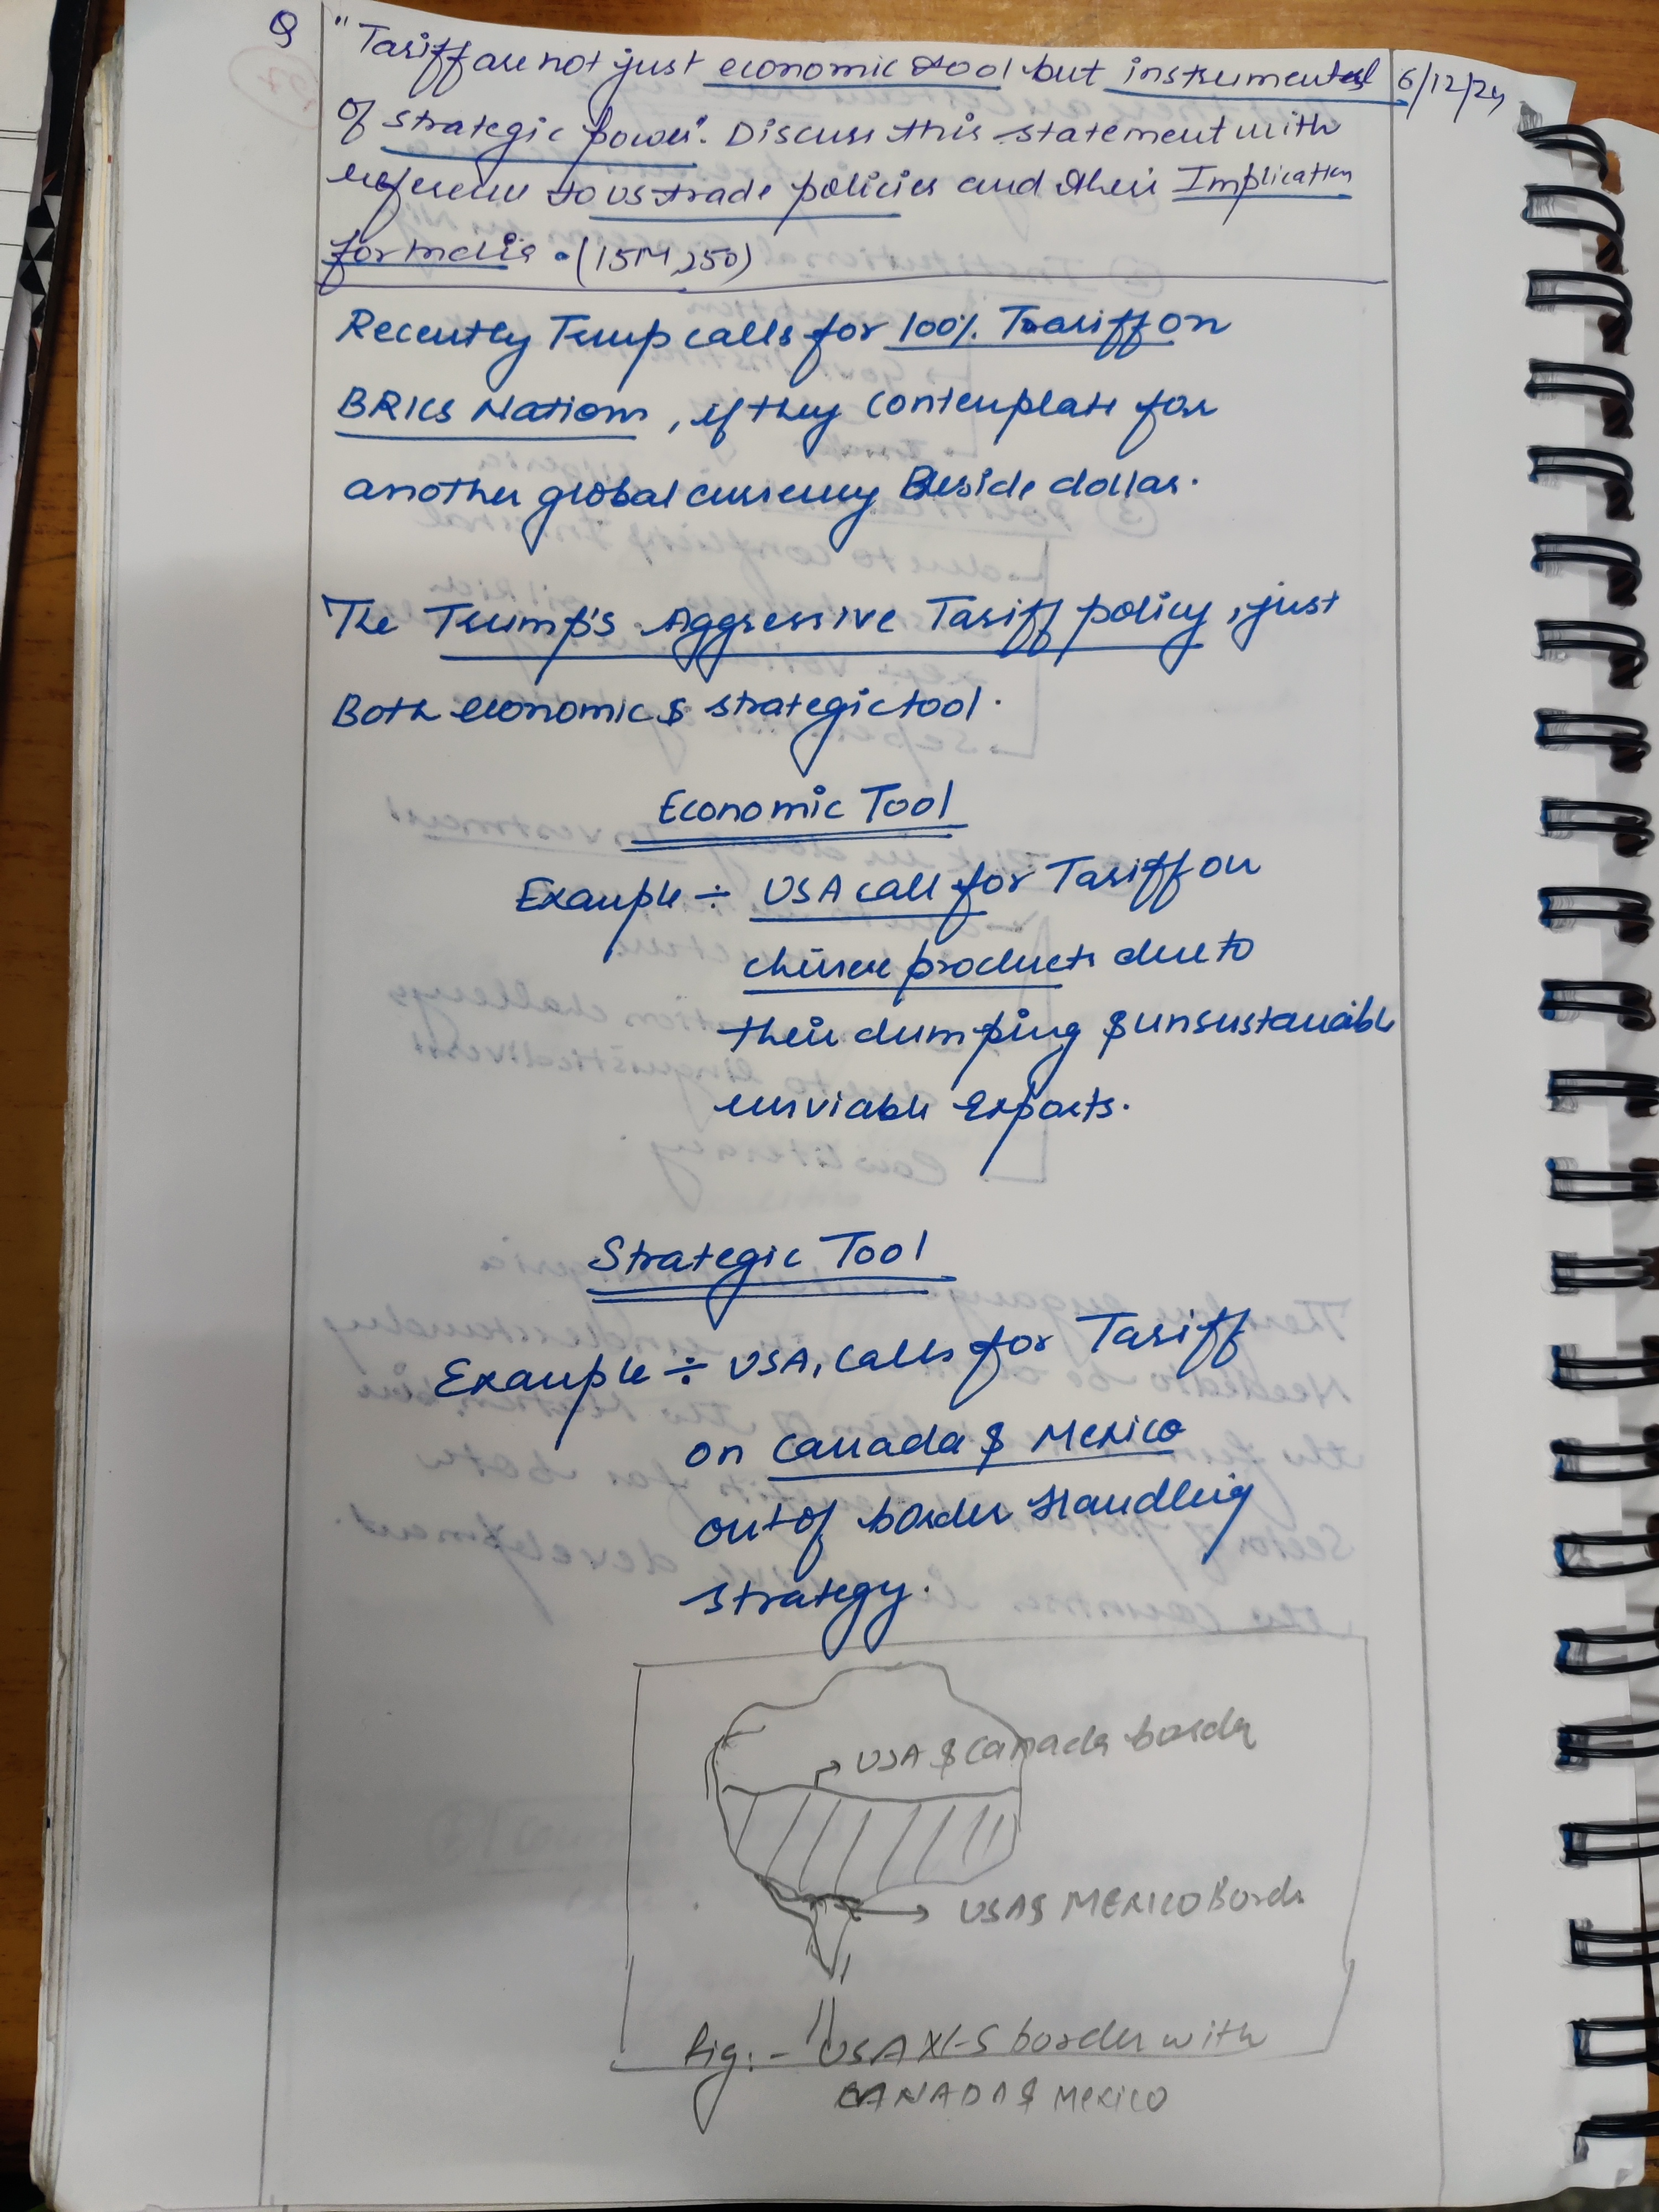 Q "Tariff are not just economic tool but instrumental 6/12/24
of strategic power". Discuss this statement with
reference to US trade policies and their Implication
for India. (15M, 250)
Recently Trump calls for 100% Tariff on
BRICS Nations, if they contemplate for
another global currency Beside dollar.
The Trump's Aggressive Tariff policy, just
Both economic & strategic tool.
Economic Tool
Example ÷ USA call for Tariff on
chinese products due to
their dumping & unsustainable
unviable Exports.
Strategic Tool
Example ÷ USA, calls for Tariff
on Canada & Mexico
out of border Handling
strategy.
→ USA & Canada border
→ USA & MEXICO Border
fig:- USA N-S border with
CANADA & MEXICO